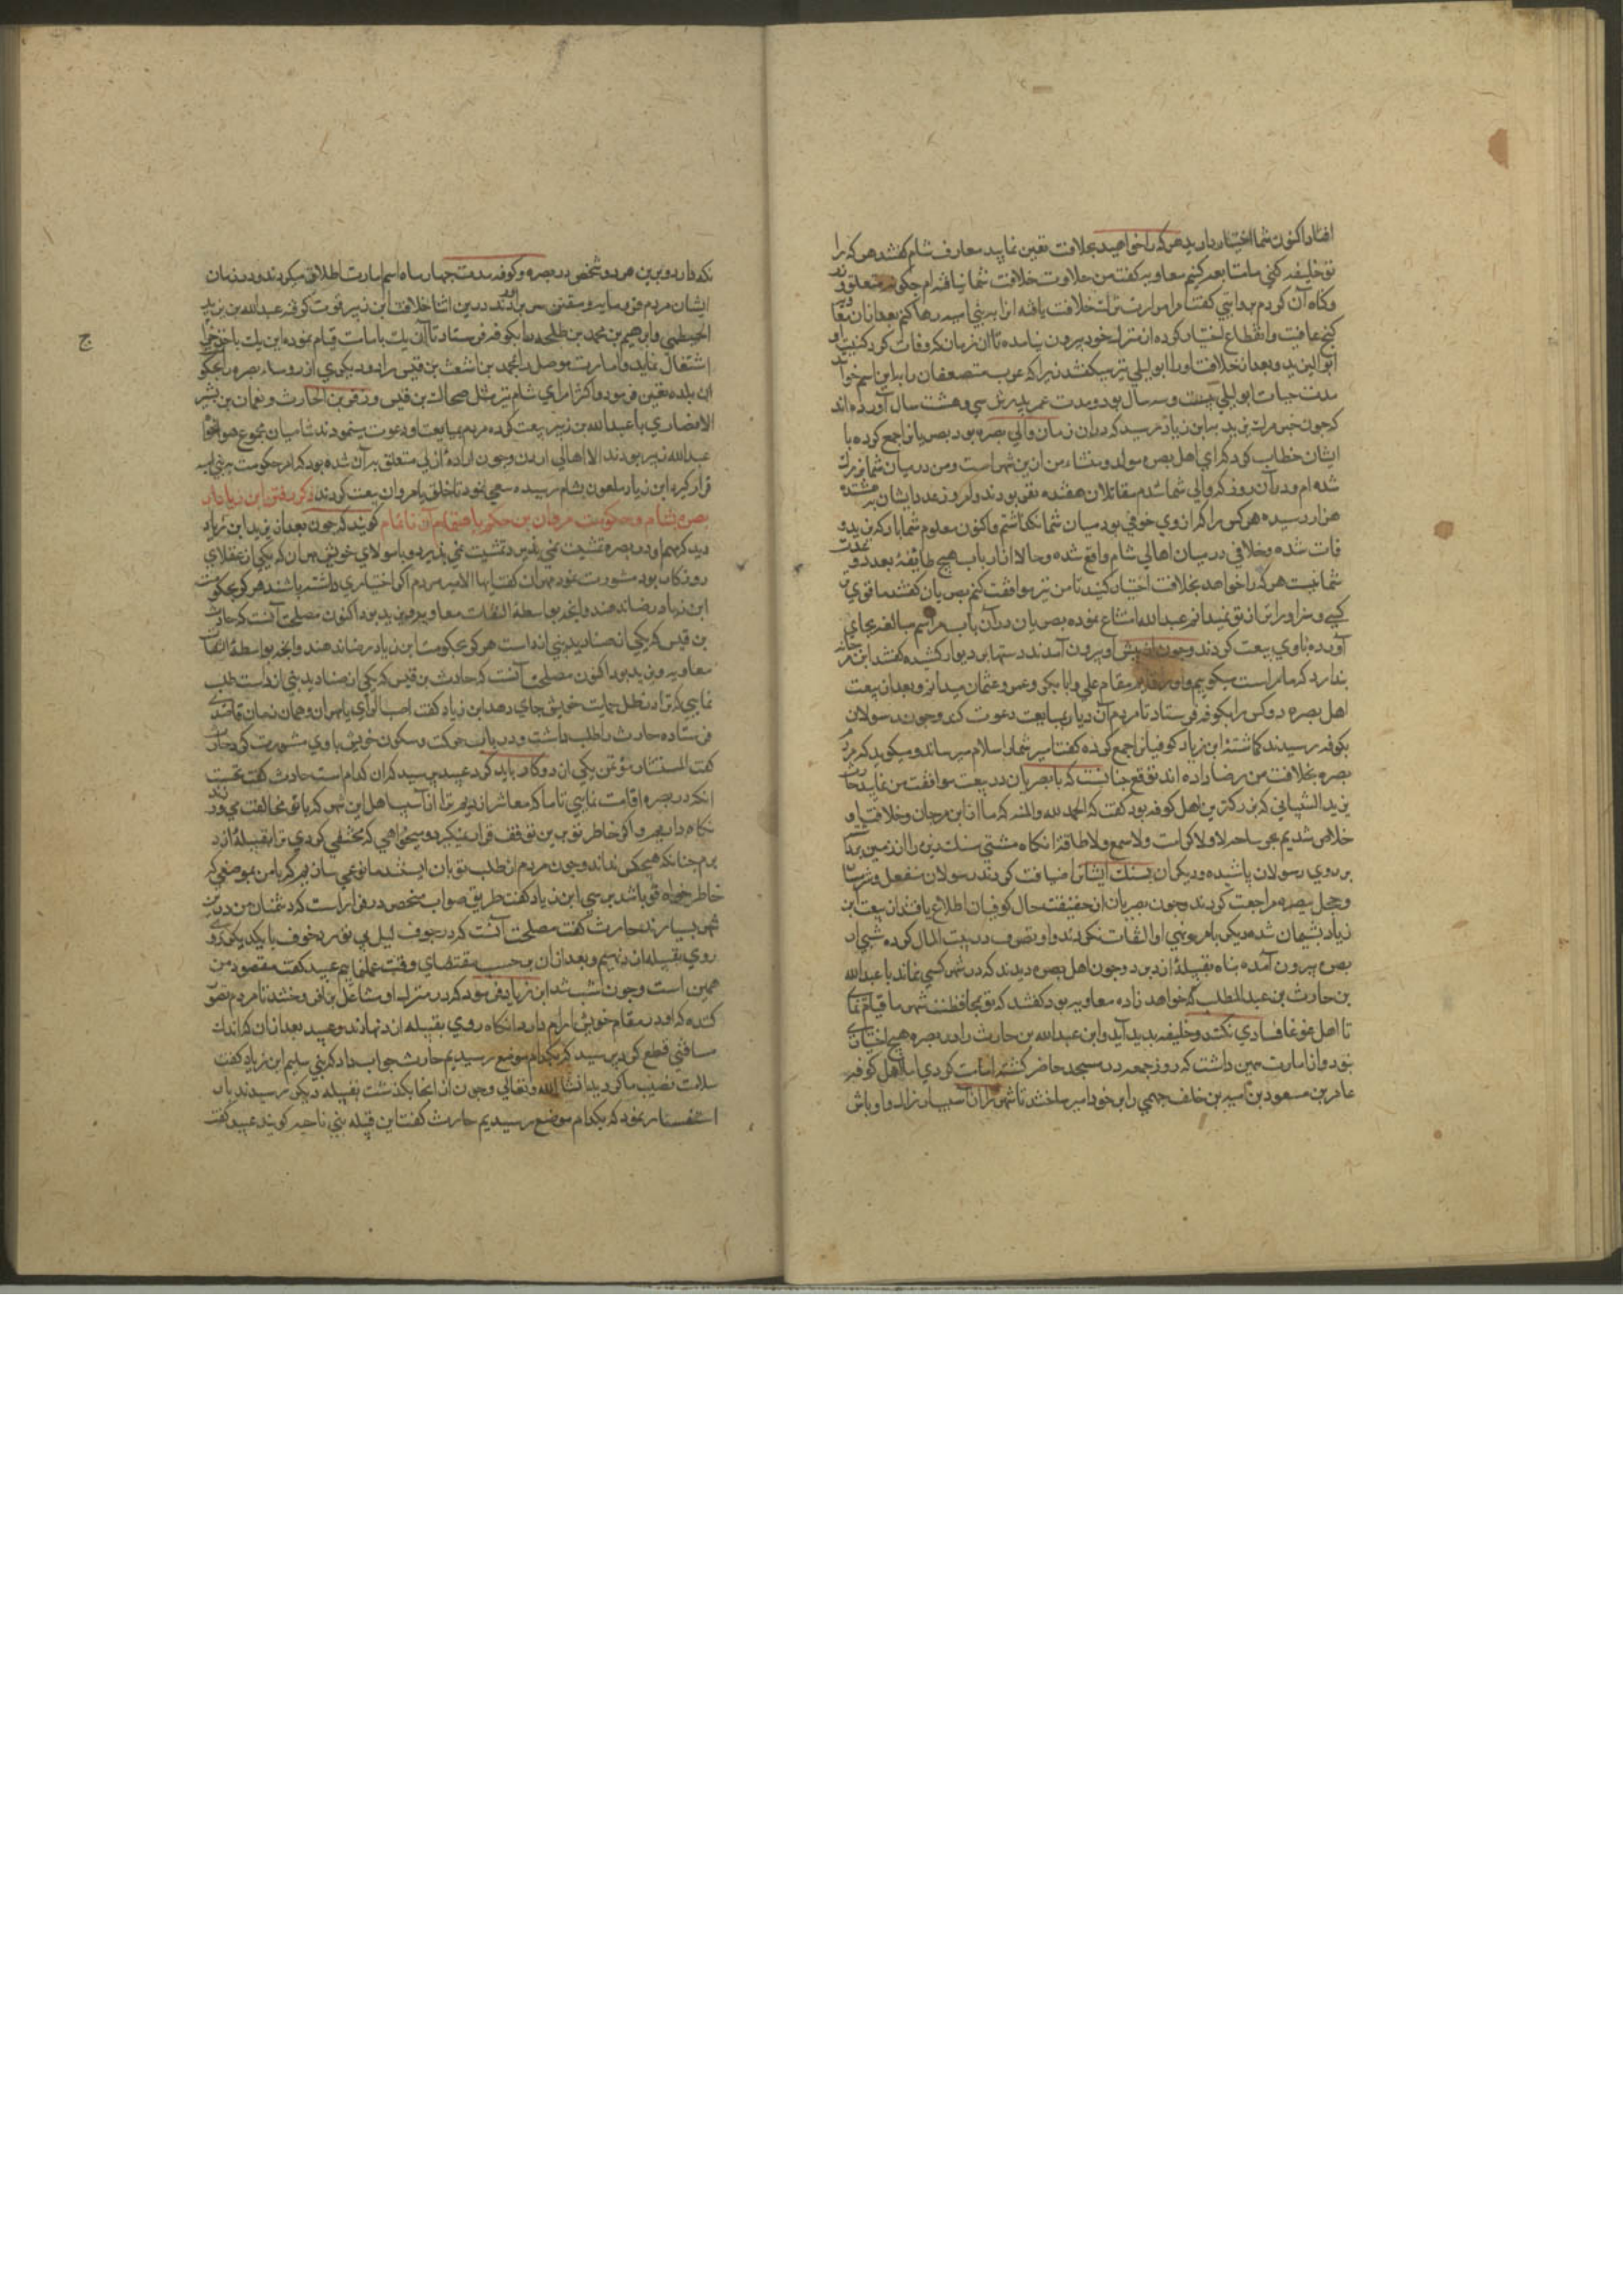 افتاد اکنون شما اختیار دارید هرکه را خواهید بخلافت تعین نمایید معارف شام کفتند هرکه را
تو خلیفه کنی ما متابعت کنیم معاویه کفت من حلاوت خلافت شما نیافته ام چکونه متقلد وزر
و کناه آن کردم بروایتی کفت مرا میراث خلافت یافته انرا به بنی امیه رها کنم بعد از ان
کنج عافیت و انقطاع اختیار کرده از منزل خود بیرون نیامده تا ان زمان که وفات کرد کنیت او
ابو الیزید و بعد از خلافت او را ابو لیلی نیز میکفتند زیرا که عرب متضعفان را بداین اسم خوانند
مدت حیات ابو لیلی بیست و سه سال بود و مدت عمر پدرش سی و هشت سال آورده اند
که چون خبر مرک یزید بابن زیاد رسید که در ان زمان والی بصره بود بصریانرا جمع کرده با
ایشان خطاب کرد که ای اهل بصره مولد و منشاء من این شهر است و من در میان شما بزرک
شده ام و در آن روز که والی شما شدم مقاتلان هفده نفر بودند و امروز عدد ایشان به هشتاد
هزار رسیده هرکس را که از وی خوفی بود میان شما نکذاشتم و اکنون معلوم شما باد که یزید و
فات شده و خلافی در میان اهالی شام واقع شده و حالا از ارباب هیچ طایفه بعدد و عدت
شما نیست هرکه را خواهد بخلافت اختیار کنید تا من نیز موافقت کنم بصریان کفتند ما قوی تر
کسی و سزاوارتر از تو نمیدانیم عبیدالله امتناع نموده بصریان در آن باب مراسم مبالغه بجای
آورده با وی بیعت کردند و چون از پیش او بیرون آمدند دستها بر دیوار کشیده کفتند ابن مرجانه
پندارد که ما راست میکوییم و او را قایم مقام علی و ابابکر و عمر و عثمان میدانیم و بعد از بیعت
اهل بصره دو کس را بکوفه فرستاد تا مردم آن دیار بمبایعت دعوت کند و چون رسولان
بکوفه رسیدند کماشته ابن زیاد کوفیانرا جمع کرده کفت امیر شما را سلام میرساند و میکوید که مردم
بصره بخلافت من رضا داده اند توقع چنانست که با بصریان در بیعت موافقت من نمایید حارث
یزید الشیبانی که بزرکترین اهل کوفه بود کفت که الحمد لله والمنه که ما از ابن مرجان و خلافت او
خلاص شدیم
بر روی رسولان پاشیده و دیکران بسنک ایشانرا ضیافت کردند رسولان منفعل و ترسان
و خجل ببصره مراجعت کردند و چون بصریان از حقیقت حال کوفیان اطلاع یافتند از بیعت ابن
زیاد پشیمان شده دیکر بامر و نهی او التفات نکردند و او تصرف در بیت المال کرده شبی از
بصره بیرون آمده پناه بقبیله ازد برد و چون اهل بصره دیدند که در شهر کسی نماند با عبدالله
بن حارث بن عبدالمطلب که خواهر زاده معاویه بود کفتند که تو بمحافظت شهر ما قیام نمای
تا اهل غوغا فسادی نکنند و خلیفه پدید آید و ابن عبدالله بن حارث را در بصره هیچ اختیار
نبود و از امارت همین داشت که روز جمعه در مسجد حاضر کشته امامت کردی اما اهل کوفه
عامر بن مسعود بن امیه بن خلف جمحی را بر خود امیر ساختند تا شهر را از آسیب اراذل و اوباش
نکه دارد و برین هر دو شخص در بصره و کوفه مدت چهار ماه اسم امارت اطلاق میکردند و در زمان
ایشان مردم فرومایه و سفیه سر بر آوردند در این اثنا خلافت ابن زبیر قوت کرفته عبدالله بن یزید
الخطمی و ابرهیم بن محمد بن طلحه را بکوفه فرستاد تا آن یک بامامت قیام نموده این یک باخذ خراج
اشتغال نماید و امارت موصل را بمحمد بن اشعث بن قیس داد و دیکری از روساء بصره را بحکومت
این بلده تعین فرمود و اکثر امرای شام نیز مثل ضحاک بن قیس و زفر بن الحارث و نعمان بن بشیر
الانصاری با عبدالله بن زبیر بیعت کرده مردم بمبایعت او دعوت مینمودند شامیان مجموع هواخواه
عبدالله زبیر بودند الا اهالی اردن و چون اراده ازلی متعلق بر آن شده بود که امر حکومت بر بنی امیه
قرار کیرد ابن زیاد ملعون بشام رسیده سعی نمود تا خلق با مروان بیعت کردند ذکر رفتن ابن زیاد از
بصره بشام و حکومت مروان بن حکم باهتمام آن ناتمام کویند که چون بعد از یزید ابن زیاد
دید که مهم او در بصره تمشیت نمی پذیرد با مولای خویش مهران که یکی از عقلای
روزکار بود مشورت نمود مهران کفت ایها الامیر مردم اکر اختیاری داشته باشند هرکز بحکومت
ابن زیاد رضا ندهند و اینچه بواسطه التفات معاویه و یزید بود اکنون مصلحت آنست که حارث
بن قیس که یکی از صنادید بنی ازد است هرکز بحکومت ابن زیاد رضا ندهند و اینچه بواسطه التفات
معاویه و یزید بود اکنون مصلحت آنست که حارث بن قیس که یکی از صنادید بنی ازد است طلب
نمایی که ترا در ظل حمایت خویش جای دهد ابن زیاد کفت اصب الرای یا مهران و همان زمان قاصدی
فرستاده حارث را طلب داشت و در باب حرکت و سکون خویش با وی مشورت کرد حارث
کفت المستشار مؤتمن یکی از دو کار باید کرد عبید پرسید که آن کدام است حارث کفت نخست
انکه در بصره اقامت نمایی تا ما که معاشر ازدیم ترا از آسیب اهل این شهر که با تو مخالفت می ورزند
نکاه داریم و اکر خاطر تو برین توقف قرار نمیکیرد و میخواهی که مختفی کردی ترا بقبیله ازد
برم چنانکه هیچکس نداند و چون مردم از طلب تو باز ایستند ما نوعی سازیم که بامن بموضعی که
خاطر خواه تو باشد برسی ابن زیاد کفت طریق صواب منحصر در فرار است که دشمنان من درین
شهر بسیارند حارث کفت مصلحت آنست که در جوف لیل بی تو هم و خوف با یکدیکر
روی بقبیله ازد نهیم و بعد از ان بر حسب مقتضای وقت عمل نماییم عبید کفت مقصود من
همین است و چون شب شد ابن زیاد فرمود که در منزل او مشاعل بر افروختند تا مردم تصور
کنند که او در مقام خویش آرام دارد انکاه روی بقبیله ازد نهادند و عبید بعد از ان که اندک
مسافتی قطع کرد پرسید که بکدام موضع رسیدیم حارث جواب داد که بنی سلیم ابن زیاد کفت
سلامت نصیب ما کردید انشا الله تعالی و چون از انجا بکذشت بقبیله دیکر رسیدند باز
استفسار نمود که بکدام موضع رسیدیم حارث کفت این قبیله بنی ناجیه کویند عبید کفت